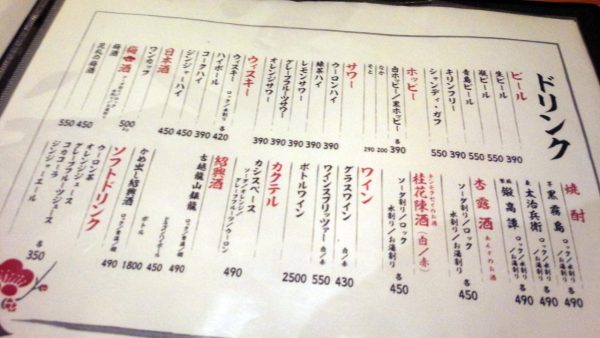 ドリンク
ビール
生ビール 390
瓶ビール 550
青島ビール 550
キリンフリー 390
シャンディ・ガフ 550
ホッピー
白ホッピー/黒ホッピー 各390
なか 200
そと 290
サワー
ウーロンハイ 390
緑茶ハイ 390
レモンサワー 390
グレープフルーツサワー 390
オレンジサワー 390
ウィスキー
ウィスキー ロック/水割り 420
ハイボール 390
コークハイ 450
ジンジャーハイ 450
日本酒
ワンカップ 450
梅酒
500
梅酒 450
550
焼酎
芋 黒霧島 ロック/水割り/お湯割り 各490
麦 太治兵衛 ロック/水割り/お湯割り 各490
ロック/水割り/お湯割り 各490
杏露酒 あんずのお酒
ソーダ割り/ロック
水割り/お湯割り 各450
桂花陳酒(白/赤)
キンモクセイのお酒
ソーダ割り/ロック
水割り/お湯割り 各450
ワイン
グラスワイン 白/赤 430
ワインスプリッツァー 白/赤 550
ボトルワイン 白/赤 2500
カクテル
カシスベース
ソーダ/オレンジ
グレープフルーツ/ウーロン 490
紹興酒
古越龍山銀龍
490
450
かめ出し紹興酒
ボトル 1800
490
ソフトドリンク
ウーロン茶
オレンジジュース
グレープフルーツジュース
コカコーラ
ジンジャーエール 各350